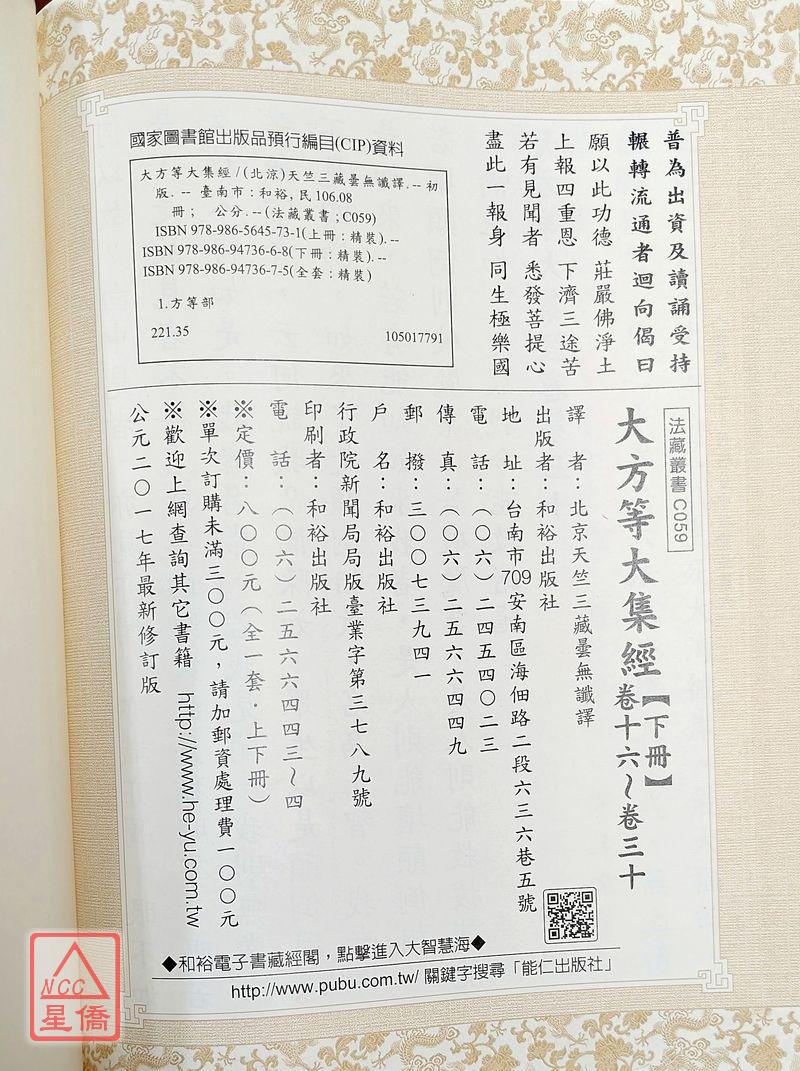 普為出資及讀誦受持
輾轉流通者迴向偈曰
願以此功德 莊嚴佛淨土
上報四重恩 下濟三途苦
若有見聞者 悉發菩提心
盡此一報身 同生極樂國
國家圖書館出版品預行編目(CIP)資料
大方等大集經/(北涼)天竺三藏曇無讖譯. -- 初
版. -- 臺南市：和裕, 民106.08
冊； 公分. -- (法藏叢書；C059)
ISBN 978-986-5645-73-1(上冊：精裝). --
ISBN 978-986-94736-6-8(下冊：精裝). --
ISBN 978-986-94736-7-5(全套：精裝)
1.方等部
221.35 105017791
法藏叢書 C059
大方等大集經【下冊】卷十六~卷三十
譯 者：北京天竺三藏曇無讖譯
出版者：和裕出版社
地 址：台南市709安南區海佃路二段六三六巷五號
電 話：(○六)二四五四○二三
傳 真：(○六)二五六六四四九
郵 撥：三○○七三九四一
戶 名：和裕出版社
行政院新聞局局版臺業字第三七八九號
印刷者：和裕出版社
電 話：(○六)二五六六四四三~四
※定價：八○○元(全一套．上下冊)
※單次訂購未滿三○○元，請加郵資處理費一○○元
※歡迎上網查詢其它書籍 http://www.he-yu.com.tw
公元二○一七年最新修訂版
◆和裕電子書藏經閣，點擊進入大智慧海◆
http://www.pubu.com.tw/ 關鍵字搜尋「能仁出版社」
NCC
星僑